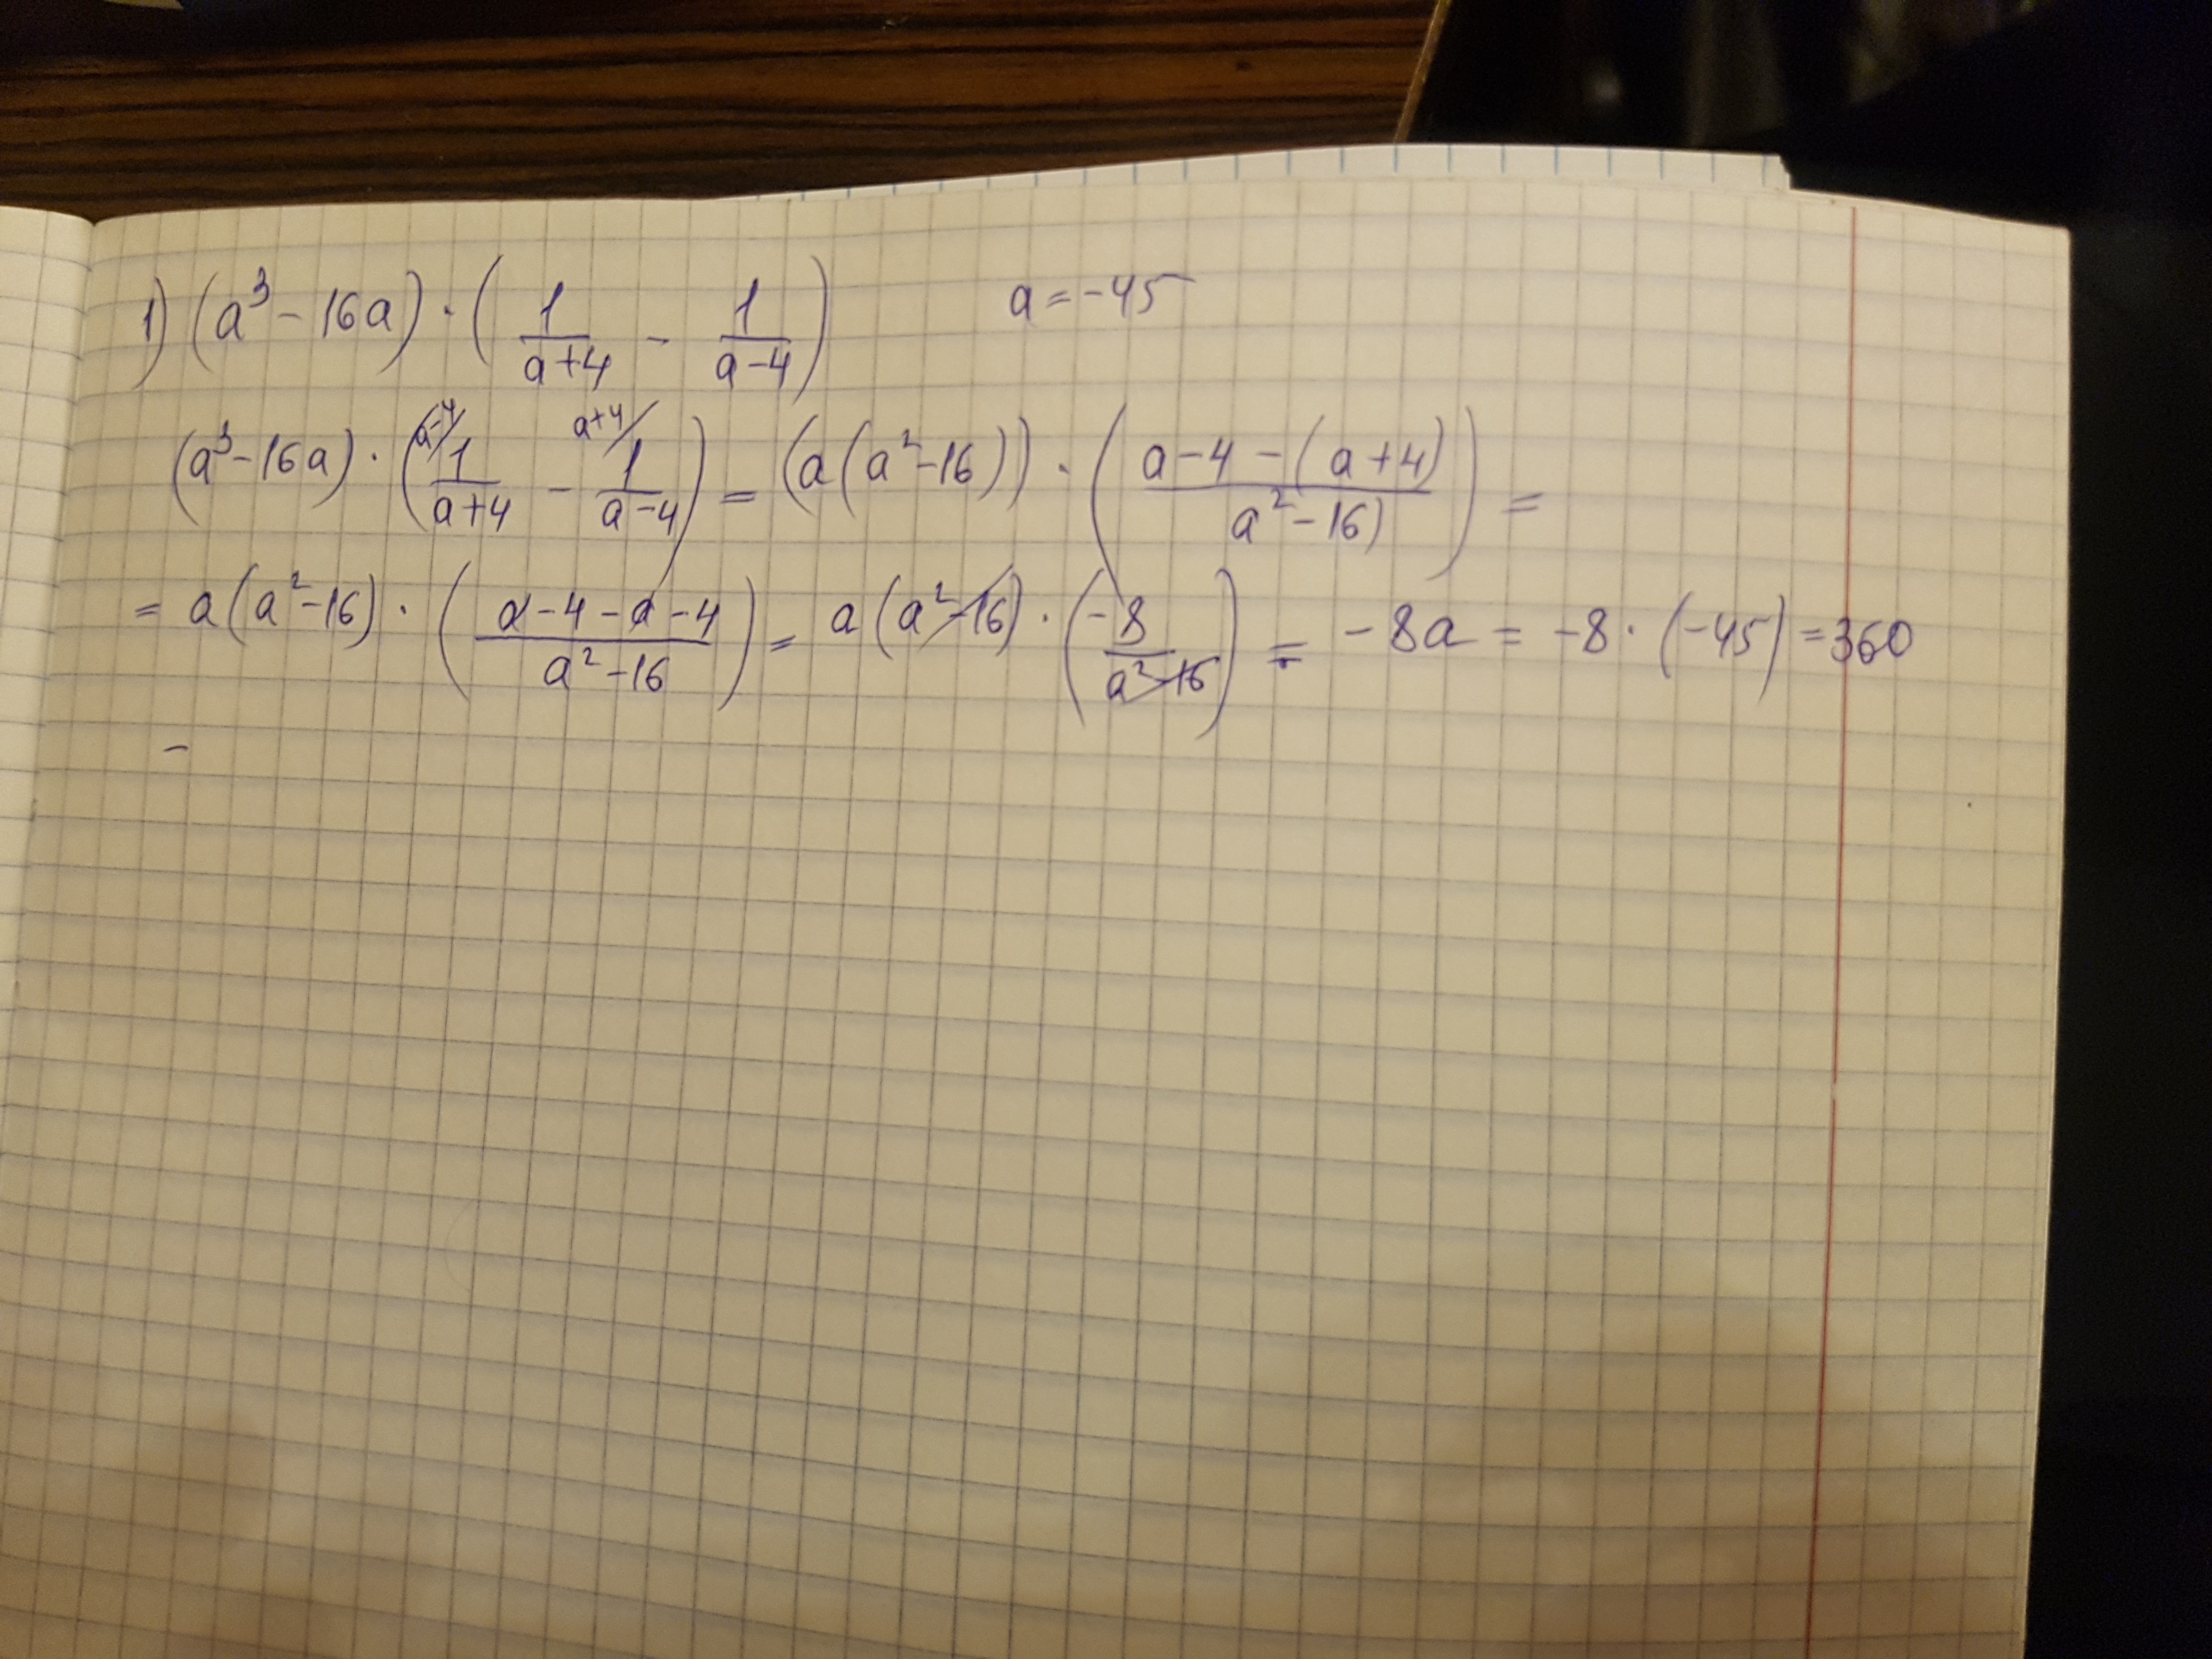 1) (a³ - 16a) · ( 1/(a+4) - 1/(a-4) ) a = -45
(a³ - 16a) · ( ᵃ⁻⁴/ 1/(a+4) - ᵃ⁺⁴/ 1/(a-4) ) = (a(a² - 16)) · ( (a-4-(a+4))/(a² - 16) ) ) =
= a(a² - 16) · ( (a-4-a-4)/(a² - 16) ) = a(a² - 16) · ( -8/(a² - 16) ) = -8a = -8 · (-45) = 360
-